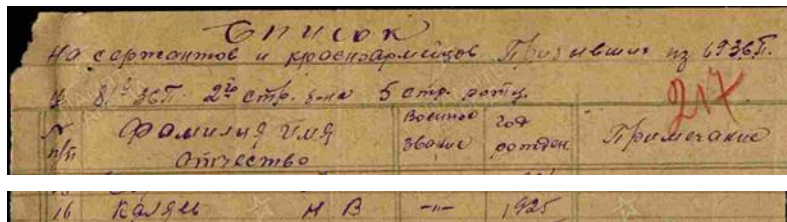 Список
на сержантов и красноармейцев Прибывших из 69 зсп.
в 81й зсп. 2го стр. б-на 5 стр. роты.
217
N п/п Фамилия Имя Отчество Военное звание год рожден Примечание
16 Каляев Н В -"- 1925